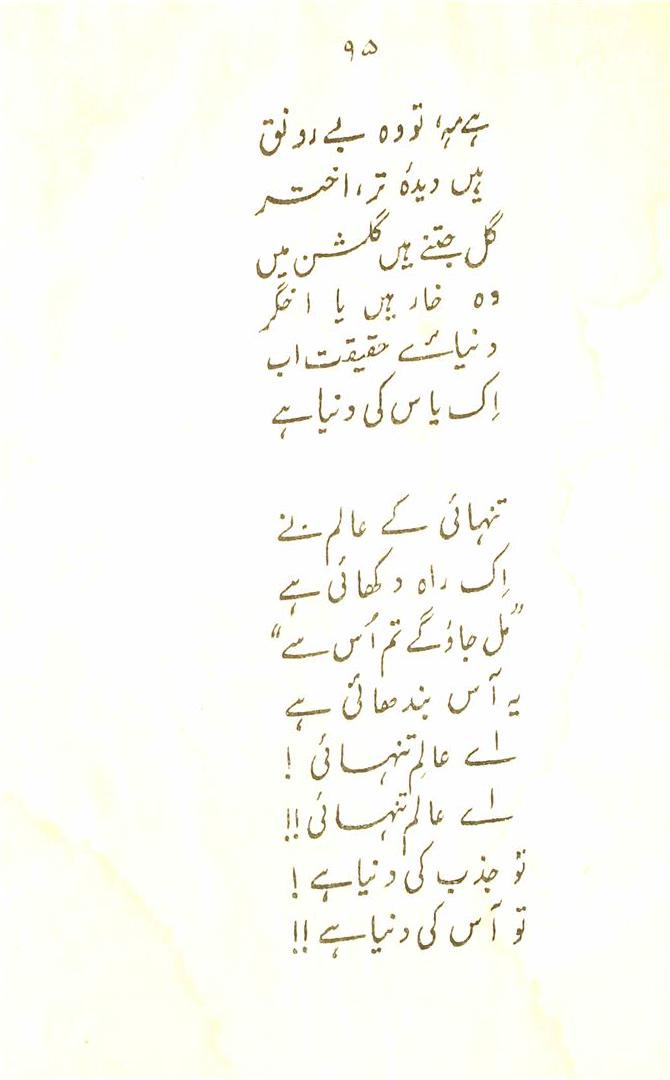 ۹۵
ہے مہ، تو وہ بے رونق
ہیں دیدۂ تر، اختر
گل جتنے ہیں گلشن میں
وہ خار ہیں یا اخگر
دنیائے حقیقت اب
اِک یاس کی دنیا ہے
تنہائی کے عالم نے
اِک راہ دکھائی ہے
”مل جاؤ گے تم اُس سے“
یہ آس بندھائی ہے
اے عالمِ تنہائی !
اے عالمِ تنہائی !!
تو جذب کی دنیا ہے !
تو آس کی دنیا ہے !!